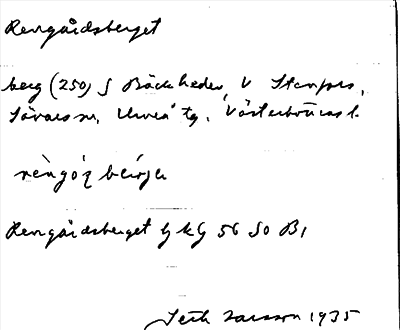 Rengårdsberget
berg (250) S Bäckheden, V Stenfors,
Sävars sn, Umeå tg. Västerbottens l.
Rengårdsberget GKG 56 SO B1
Seth Larsson 1935